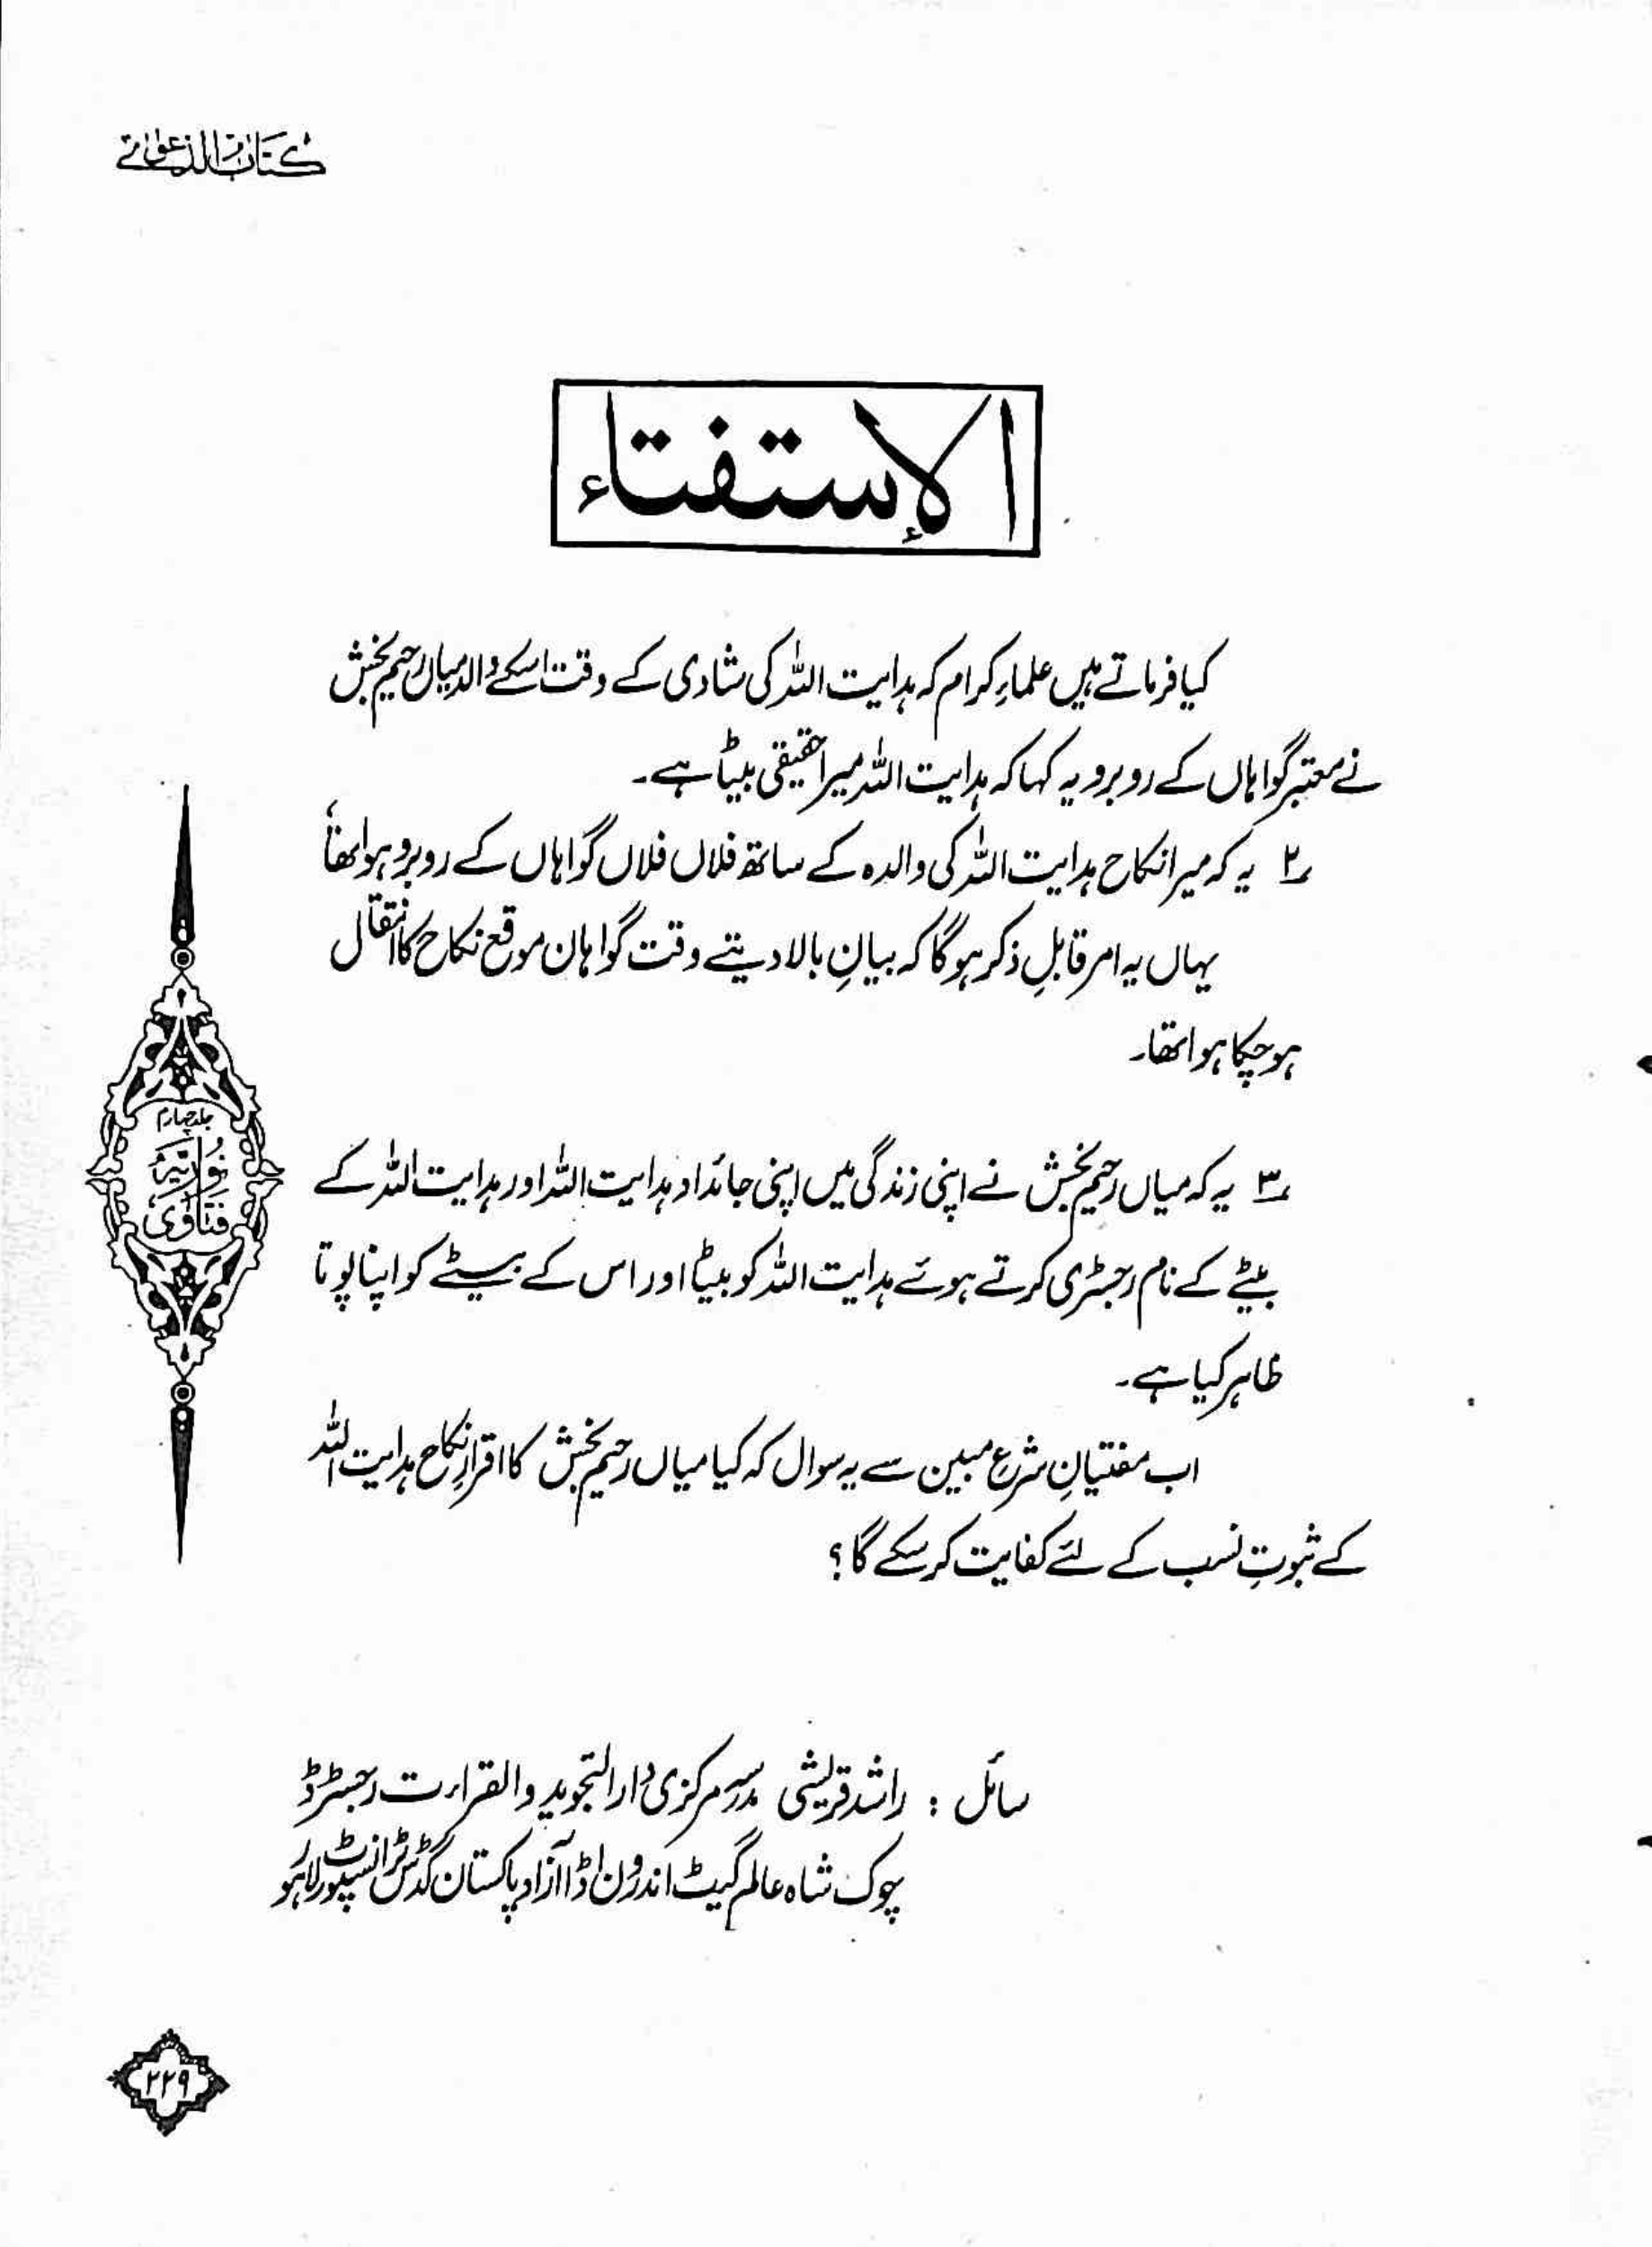 کتاب الدعوٰے
الإستفتاء
کیا فرماتے ہیں علماءِ کرام کہ ہدایت اللہ کی شادی کے وقت اسکے والد میاں رحیم بخش
نے معتبر گواہاں کے روبرو یہ کہا کہ ہدایت اللہ میرا حقیقی بیٹا ہے۔
۲ یہ کہ میرا نکاح ہدایت اللہ کی والدہ کے ساتھ فلاں فلاں گواہاں کے روبرو ہوا تھا
یہاں یہ امر قابلِ ذکر ہوگا کہ بیانِ بالا دیتے وقت گواہان موقع نکاح کا انتقال
ہو چکا ہوا تھا۔
۳ یہ کہ میاں رحیم بخش نے اپنی زندگی میں اپنی جائداد ہدایت اللہ اور ہدایت اللہ کے
بیٹے کے نام رجسٹری کرتے ہوئے ہدایت اللہ کو بیٹا اور اس کے بیٹے کو اپنا پوتا
ظاہر کیا ہے۔
اب مفتیانِ شرع مبین سے یہ سوال کہ کیا میاں رحیم بخش کا اقرارِ نکاح ہدایت اللہ
کے ثبوتِ نسب کے لئے کفایت کر سکے گا؟
سائل : راشد قریشی مدرس مرکزی دار التجوید والقراءت رجسٹرڈ
چوک شاہ عالم گیٹ اندرون اڈا آزاد پاکستان گڈس ٹرانسپورٹ لاہور
جلد چہارم
نوریہ
فتاوی
۲۲۹